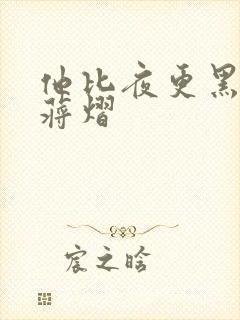 他比夜更黑
蒋熠
宸之晗